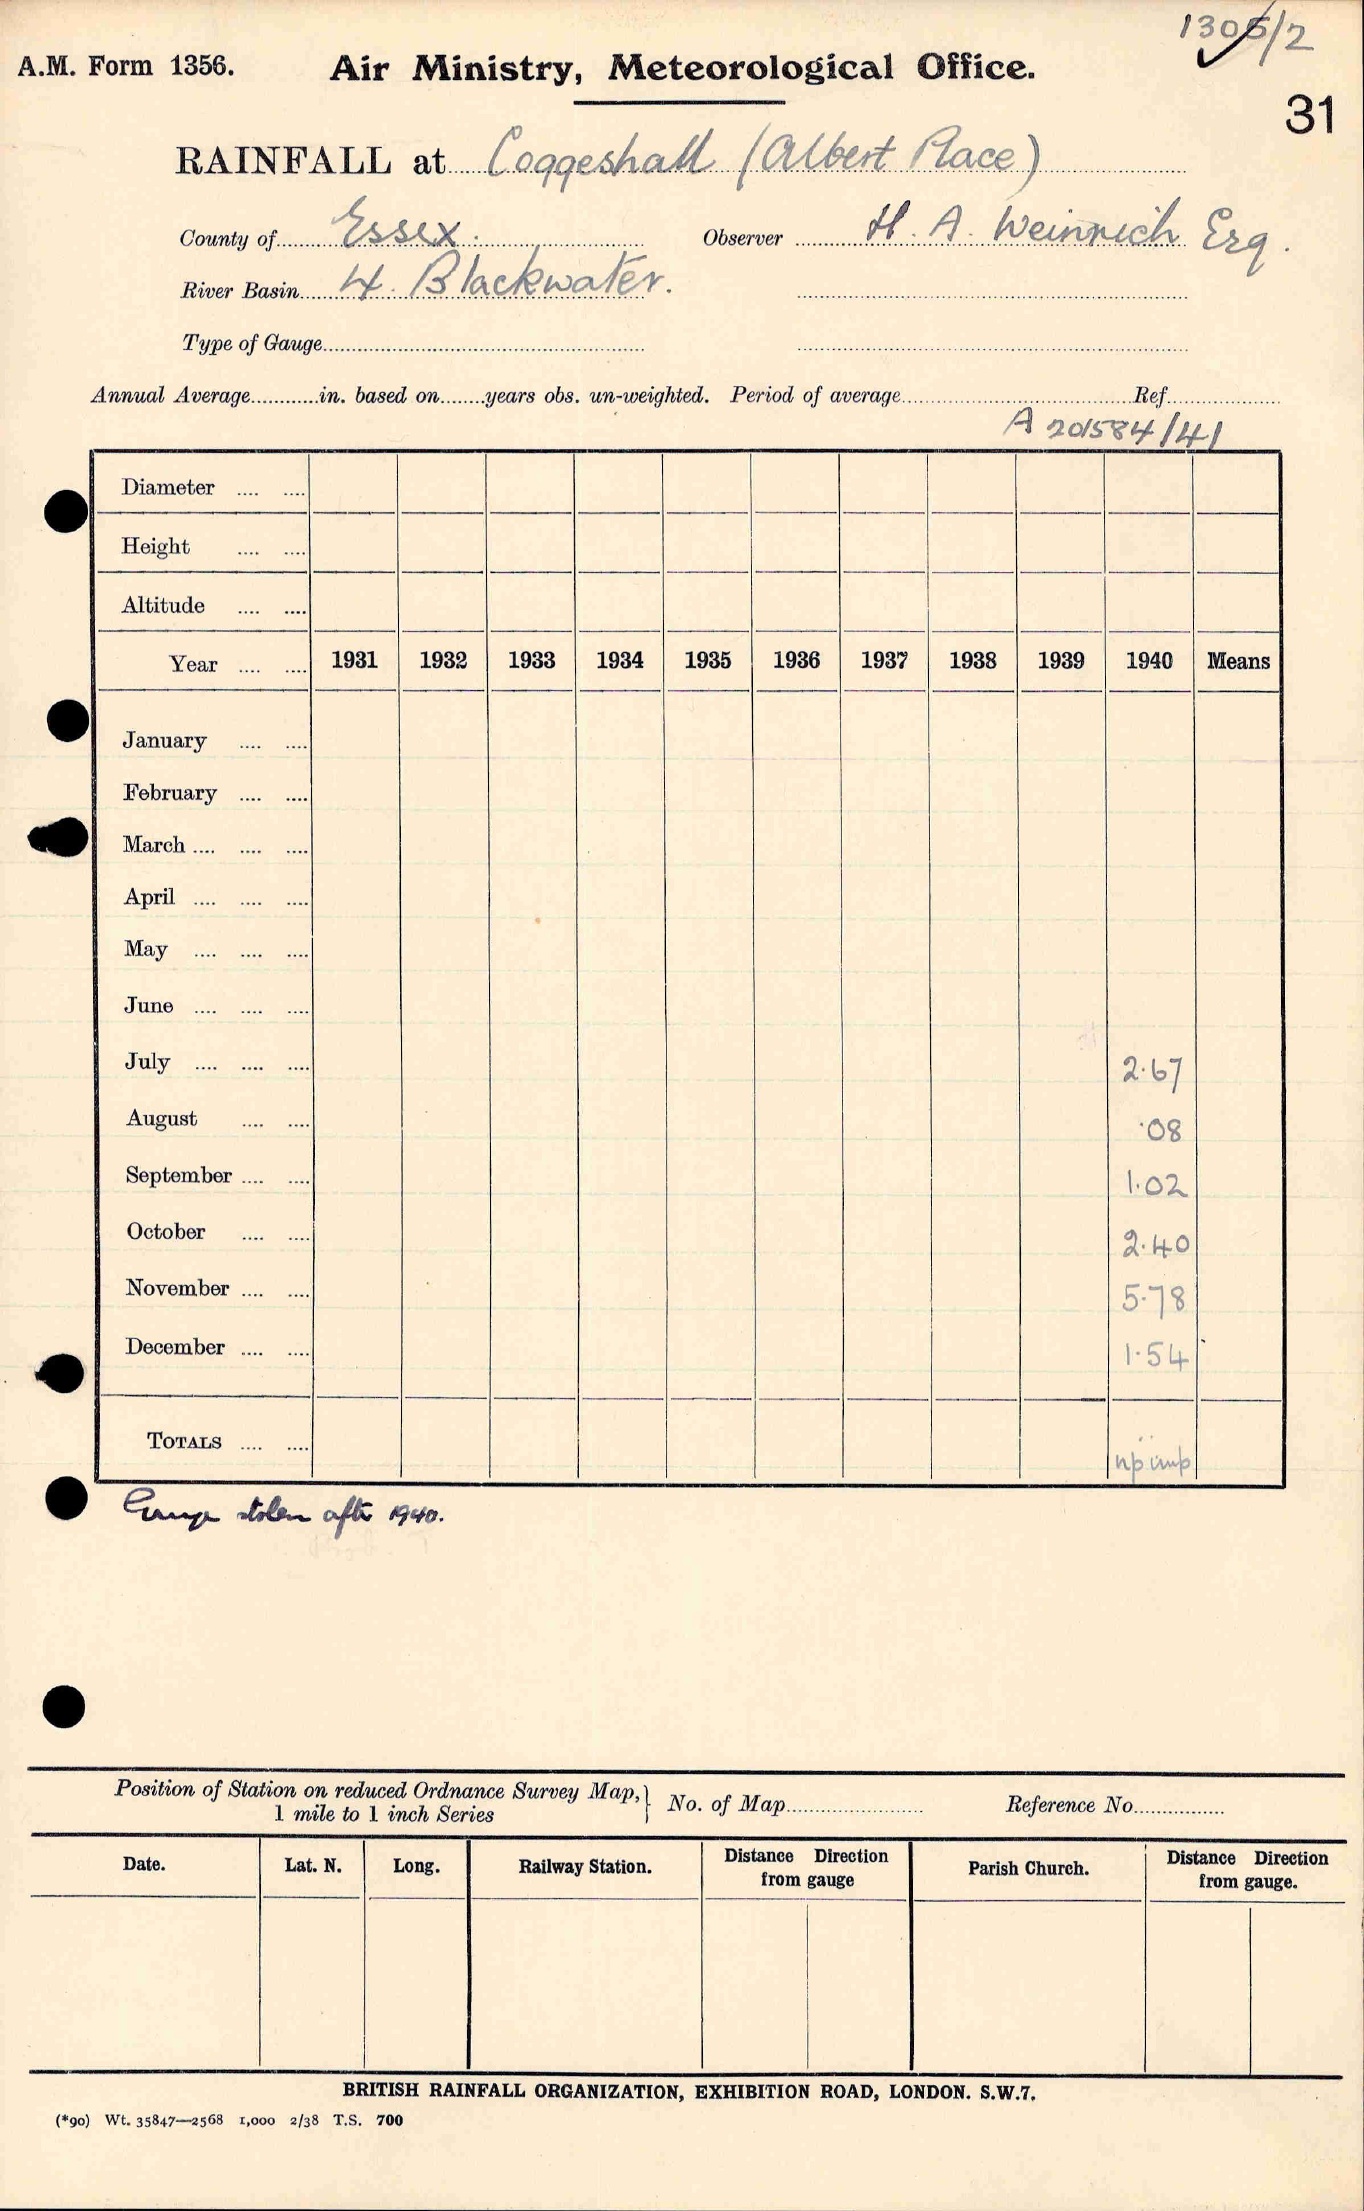 1305/2
A.M. Form 1356. Air Ministry, Meteorological Office.
31
RAINFALL at Coggeshall (Albert Place)
County of Essex. Observer H. A. Weinrich Esq.
River Basin 4. Blackwater.
Type of Gauge
Annual Average in. based on years obs. un-weighted. Period of average Ref.
A 201584/41
Diameter
Height
Altitude
Year 1931 1932 1933 1934 1935 1936 1937 1938 1939 1940 Means
January
February
March
April
May
June
July 2.67
August .08
September 1.02
October 2.40
November 5.78
December 1.54
TOTALS np imp
Gauge stolen after 1940.
Position of Station on reduced Ordnance Survey Map, } No. of Map Reference No.
1 mile to 1 inch Series
Date. Lat. N. Long. Railway Station. Distance Direction from gauge Parish Church. Distance Direction from gauge.
BRITISH RAINFALL ORGANIZATION, EXHIBITION ROAD, LONDON. S.W.7.
(*90) Wt. 35847—2568 1,000 2/38 T.S. 700